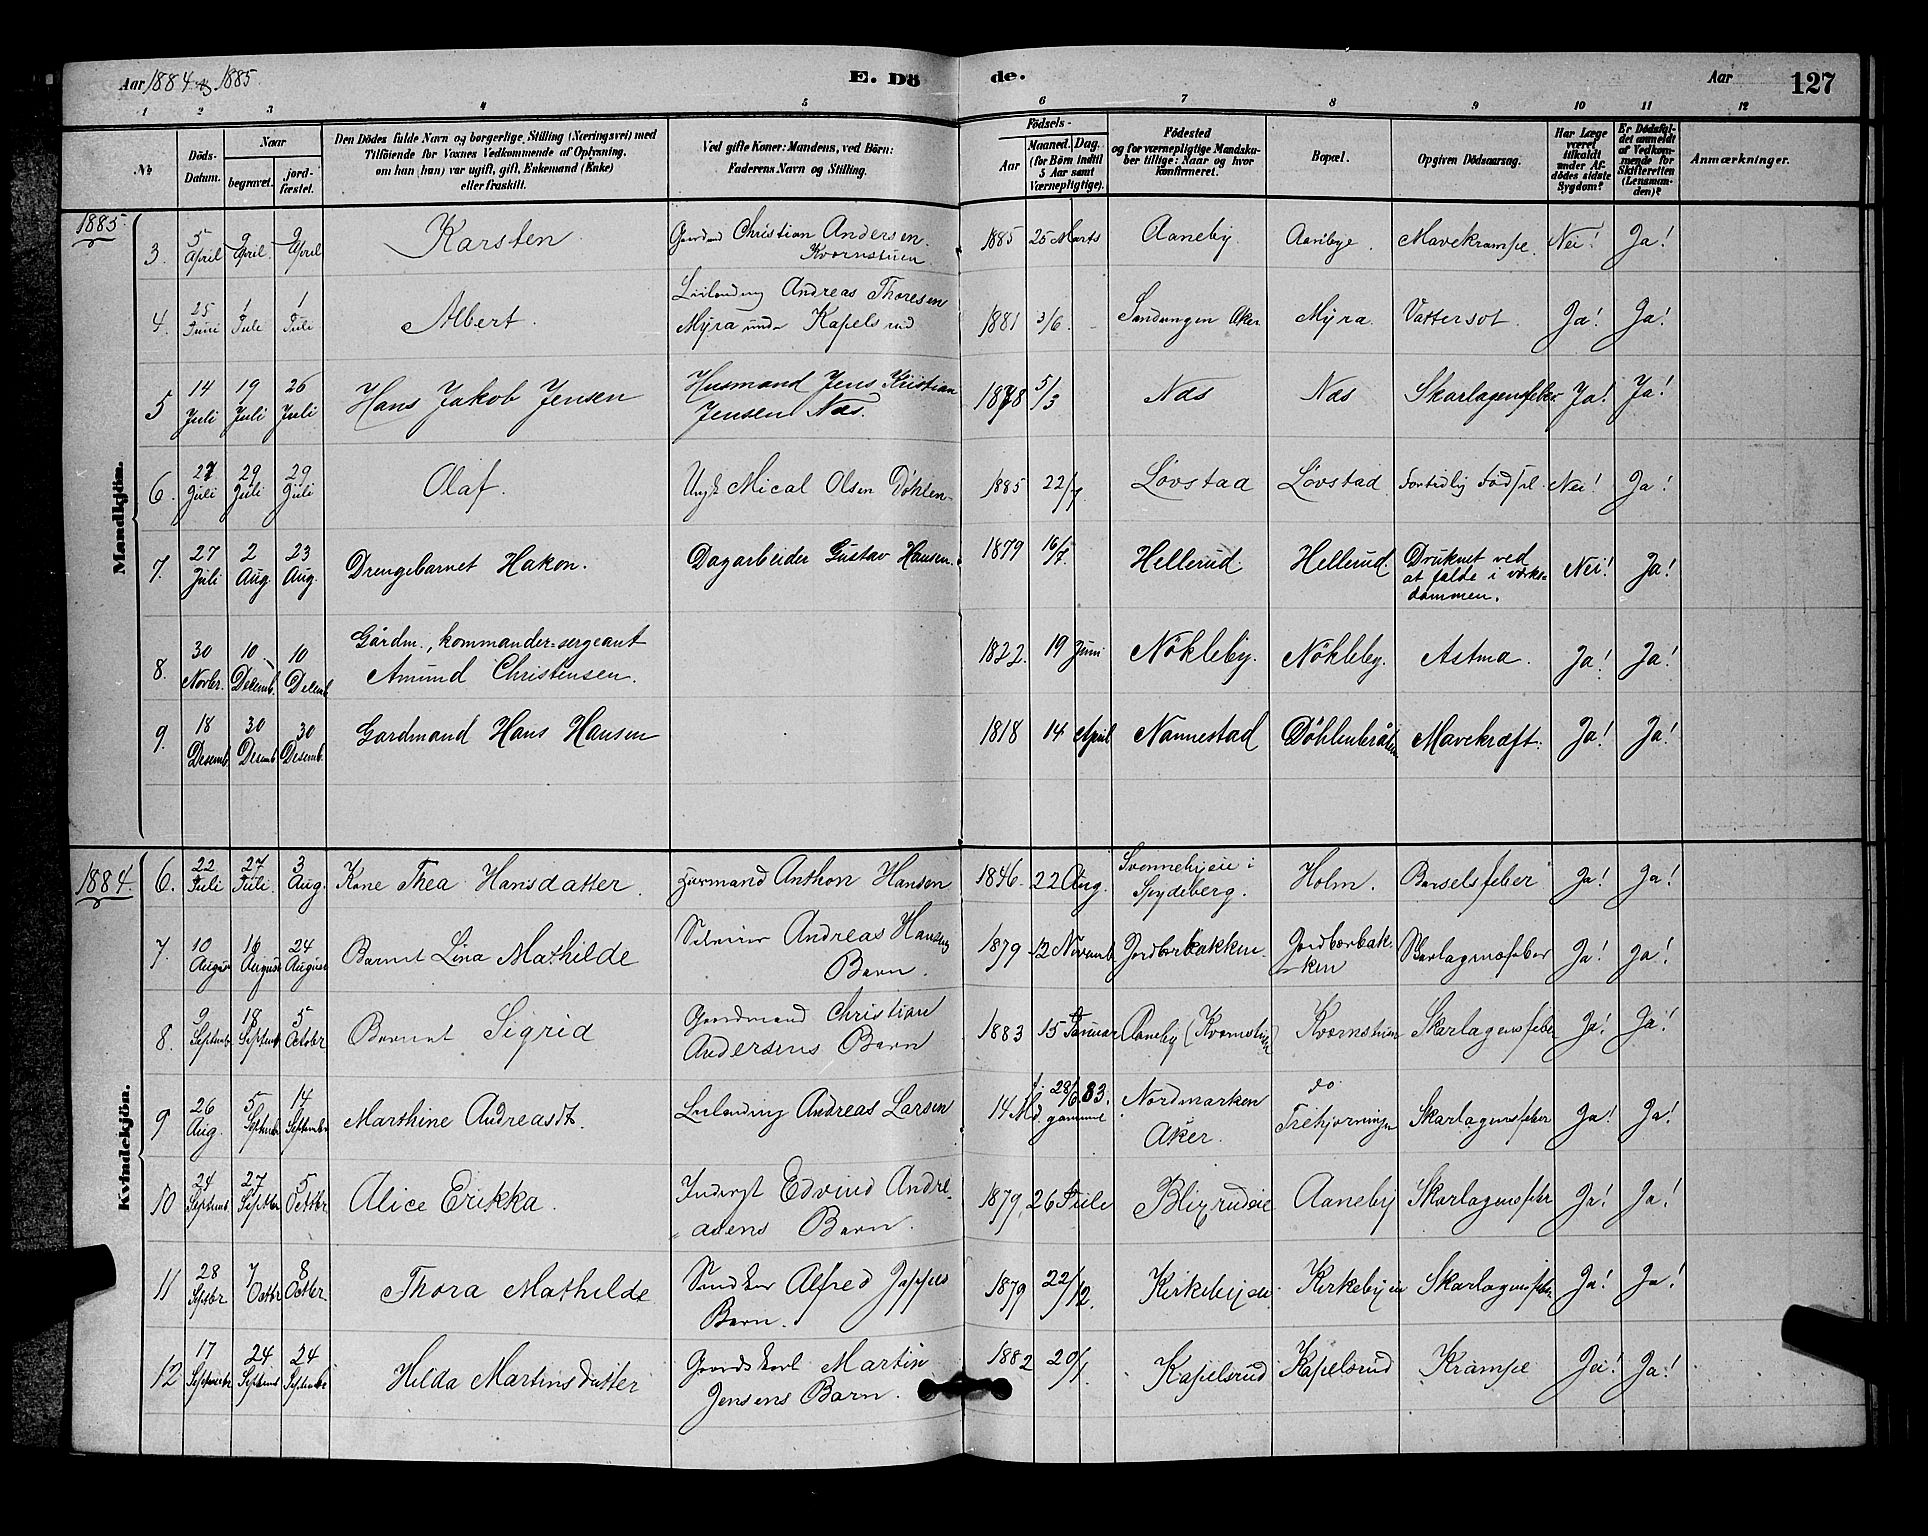 Aar 1884 & 1885.
E. Dö de.
Aar
127
1 2 3 4 5 6 7 8 9 10 11 12
№
Döds-Datum.
Naar
begravet.
jord-fæstet.
Den Dödes fulde Navn og borgerlige Stilling (Næringsvei) med
Tilföiende for Voxnes Vedkommende af Oplysning,
om han (hun) var ugift, gift, Enkemand (Enke)
eller fraskilt.
Ved gifte Koner: Mandens, ved Börn:
Faderens Navn og Stilling.
Födsels-
Aar
Maaned. Dag.
(for Börn indtil
5 Aar samt
Værnepligtige).
Födested
og for værnepligtige Mandska-
ber tillige: Naar og hvor
konfirmeret.
Bopæl.
Opgiven Dödsaarsag.
Har Læge
været
tilkaldt
under Af-
dödes sidste
Sygdom?
Er Dödsfal-
det anmeldt
af Vedkom-
mende for
Skifteretten
(Lensman-
den)?
Anmærkninger.
Mandkjön.
1885
3. 5 April 9 April 9 April Karsten Christian Andersen Kvornstuen 1885 25 Marts Aaneby. Aanbye. Mavekrampe. Nei! Ja!
4. 25 Juni 1 Juli 1 Juli Albert. Leilending Andreas Thoresen
Myra und. Kapelsrud 1881 3/6 Sandungen Aker Myra. Vattersot. Ja! Ja!
5 14 Juli 19 Juli 26 Juli Hans Jakob Jensen Husmand Jens Kristian
Jensen Næs. 1878 5/3 Næs Næs Skarlagensfeber Ja! Ja!
6. 27 Juli 29 Juli 29 Juli Olaf. Ungk Mical Olsen Døhlen 1885 22/7 Løvstad Løvstad Fortidlig Fødsel. Nei! Ja!
7. 27 Juli 2 Aug. 23 Aug. Drengebarnet Hakon. Dagarbeider Gustav Hansen. 1879 16/7. Hellerud. Hellerud. Druknet ved
at falde i værks-
dammen. Nei! Ja!
8. 30 Novbr. 10 Decemb. 10 Decemb. Gårdm., kommander-sergeant
Amund Christensen. 1822. 19 Juni Nökleby. Nökleby. Astma. Ja! Ja!
9. 18 Desemb. 30 Desemb. 30 Desemb. Gardmand Hans Hansen 1818 14 April Nannestad Döhlenbråten Mavekræft. Ja! Ja!
Kvindekjön.
1884.
6. 22 Juli 27 Juli. 3 Aug. Kone Thea Hansdatter. Husmand Anthon Hansen 1846. 22 Aug. Svennebyeie i
Spydeberg. Holm. Barselsfeber Ja! Ja!
7. 10 August 16 August 24 August Barnet Lina Mathilde Andreas Hansens
Barn. 1879 12 Novemb Jordbærbakken. Jordbærbak-
ken Skarlagensfeber Ja! Ja!
8. 9 Septemb 18 Septemb 5 October Barnet Sigrid Gaardmand Christian
Andersens Barn 1883 15 Januar Aaneby (Kvornstuen) Kvornstuen Skarlagensfeber Ja! Ja!
9 26 Aug. 5 Septembr 14 September Marthine Andreasdt. Leilending Andreas Larsen 14 Md. gammel f. 28/6 83. Nordmarken
Aker. do
Trehjørningen Skarlagensfeber Ja! Ja!
10 24 Septemb 27 Septbr 5 Octbr Alice Erikka. Inderst Edvind Andre-
asens Barn. 1879, 26 Juli Blixrudeie Aaneby Skarlagensfeber Ja! Ja!
11 28 Septbr 7 Octbr 8 Octbr. Thora Mathilde Snedker Alfred Jappes
Barn. 1879 22/12. Kirkebyeie Kirkebyeie Skarlagensfeber Ja! Ja!
12 17 September 24 Septemb 24 September Hilda Martinsdatter Gaardskarl Martin
Jensens Barn. 1882 20/1. Kapelsrud Kapelsrud Krampe Ja! Ja!